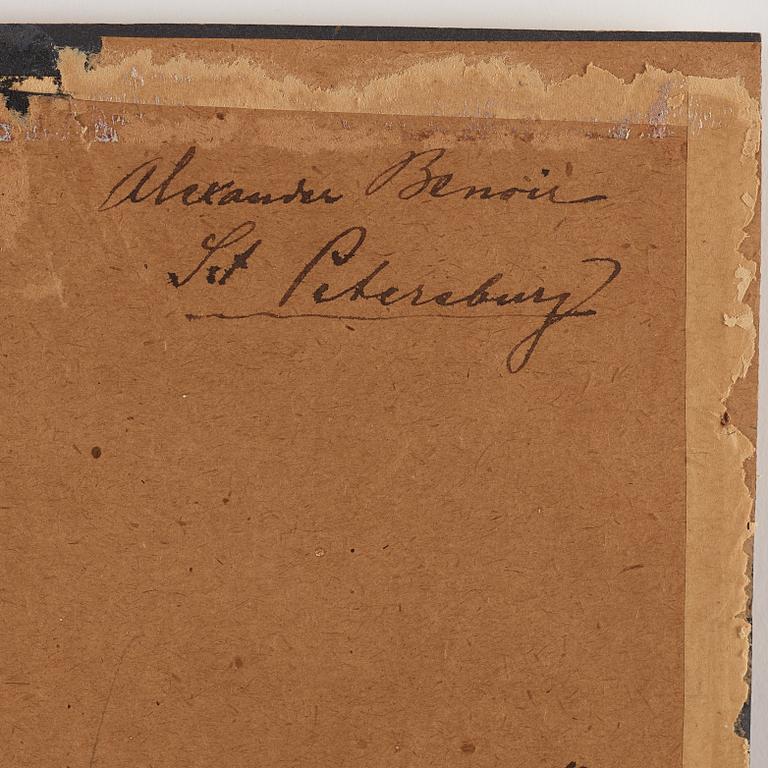 Alexander Benoir
St Petersburg